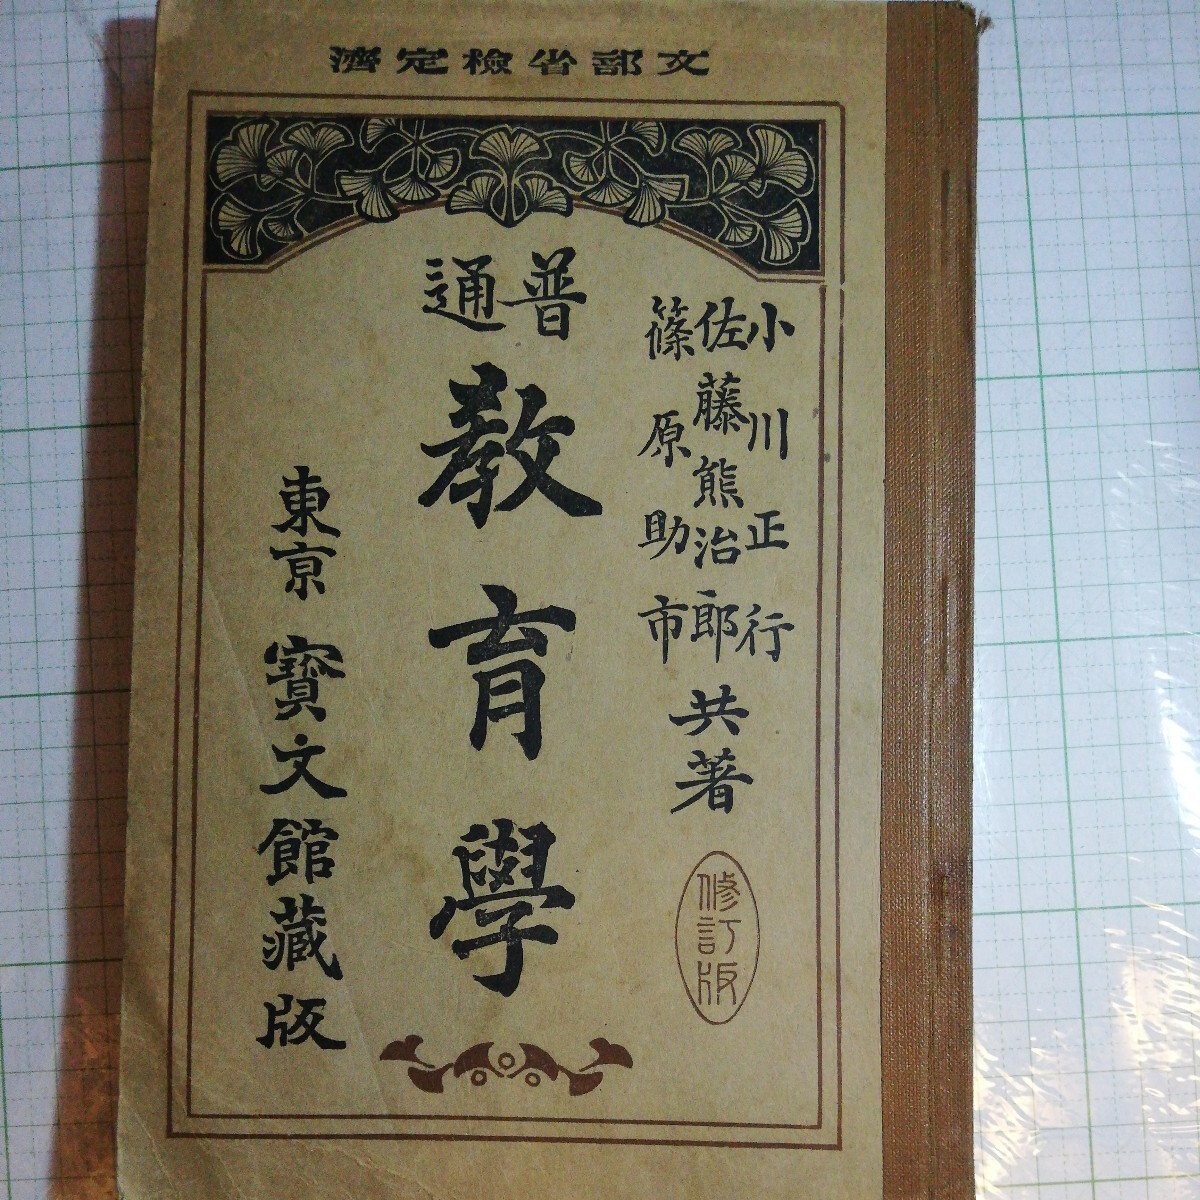 文部省檢定濟
小川正行
佐藤熊治郎
篠原助市
共著
修訂版
普通
教育學
東京 寶文館藏版